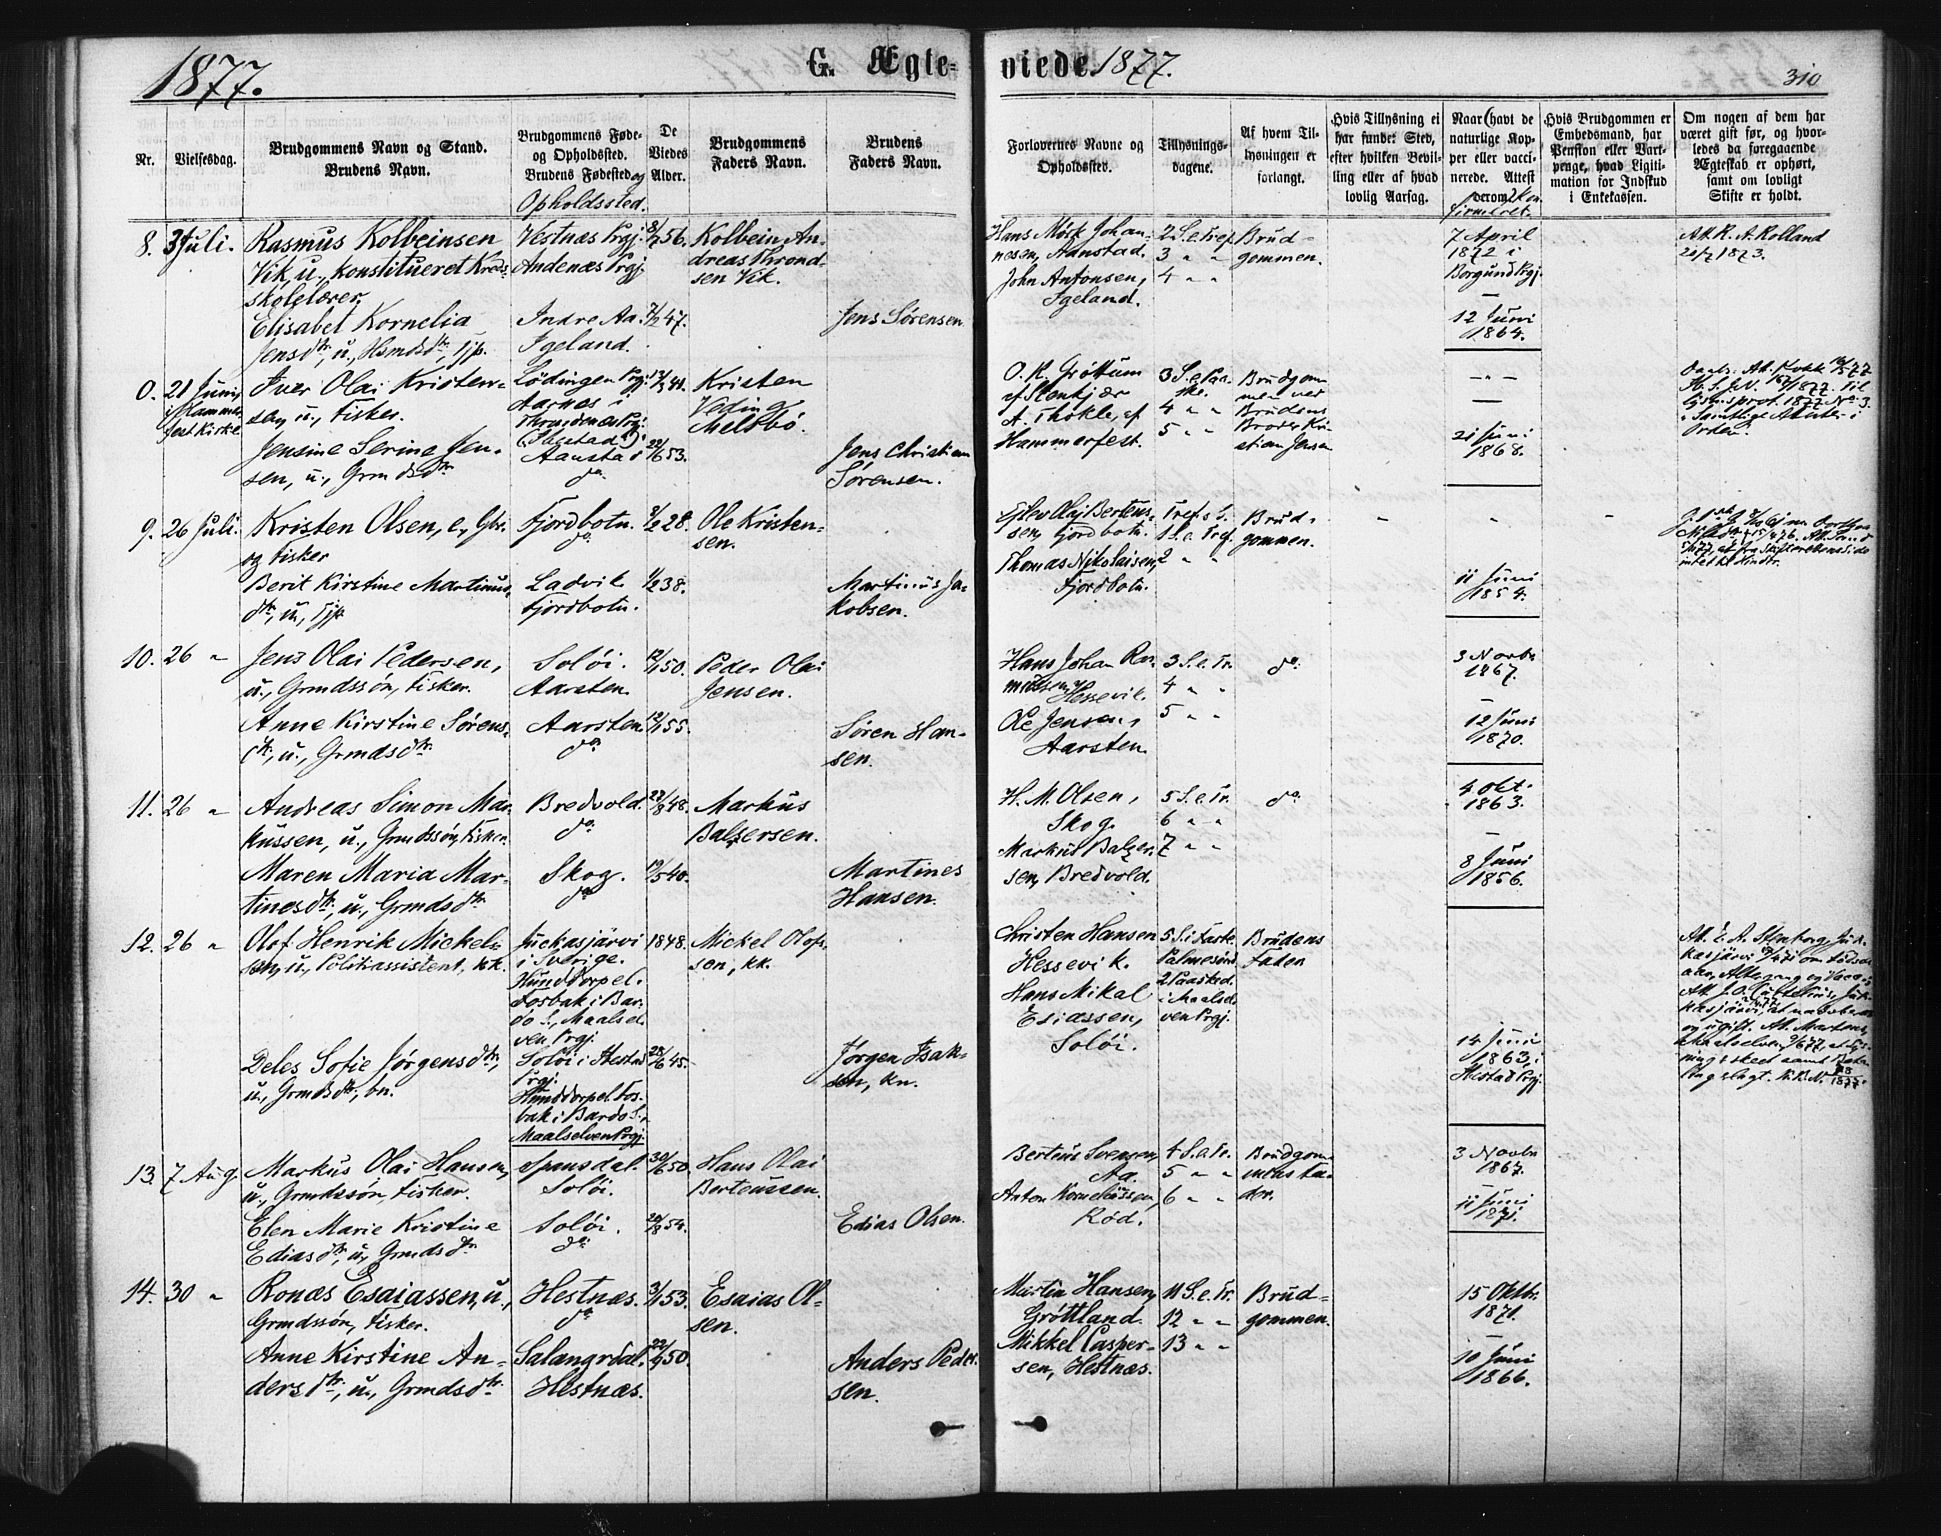 1877.
G. Ægte-
viede. 1877.
310
Nr.
Vielsesdag.
Brudgommens Navn og Stand.
Brudens Navn.
Brudgommens Føde-
og Opholdssted.
Brudens Fødested og
Opholdssted.
De
Viedes
Alder.
Brudgommens
Faders Navn.
Brudens
Faders Navn.
Forlovernes Navne og
Opholdssted.
Tillysnings-
dagene.
Af hvem Til-
lysningen er
forlangt.
Hvis Tillysning ei
har fundet Sted,
efter hvilken Bevil-
ling eller af hvad
lovlig Aarsag.
Naar (havt de
naturlige Kop-
per eller vacci-
nerede. Attest
derom) Kon
firmeret.
Hvis Brudgommen er
Embedsmand, har
Pension eller Vart-
penge, hvad Ligiti-
mation for Indskud
i Enkekassen.
Om nogen af dem har
været gift før, og hvor-
ledes da foregaaende
Ægteskab er ophørt,
samt om lovligt
Skifte er holdt.
8. 3 Juli.
Rasmus Kolbeinsen
Vik, u., konstitueret Kreds-
skolelærer.
Elisabet Kornelia
Jensdtr., u., Hsmdsdtr., tjp.
Vestnæs Prgj.
Andenæs Prgj.
Indre Aa.
Igeland.
8/7 56.
7/2 47.
Kolbein An-
dreas Thrond-
sen Vik.
Jens Sørensen
Hans Mørk Johan-
nesen, Aanstad.
John Antonsen,
Igeland.
2 S.e.Tref.
3 " "
4 " "
Brud-
gommen.
7 April
1872 i
Borgund Prgj.
12 Juni
1864.
Att. K. A. Rolland
20/2 1873.
0. 21 Juni,
i Hammer-
fest Kirke
Iver Olai Kristen-
sen, u., Fisker.
Jensine Serine Jen-
sen, u., Grmdsdtr.
Lødingen Prgj.
Aarnes i
Throndenes Prgj.
(Sagstad?)
Aanstad
do.
22/6 53.
Kristen
Vedin
Melsbø.
Jens Christian
Sørensen.
O. K. Grøttum
af Stenkjær
A. Thokle, af
Hammerfest.
3 S.e.Paa-
ske.
4 " "
5 " "
Brudgom
men ved
Brudens
Broder Kri-
stian Jensen
21 Juni
1868.
9. 26 Juli.
Kristen Olsen, e., Gbr.
og Fisker
Berit Kirstine Martinus-
dtr., u., tjp.
Fjordbotn.
do.
Ladvik
Fjordbotn.
3/2 28.
1/2 38.
Ole Kristen-
sen.
Martinus Ja-
kobsen.
Eslev Olaj Berteus-
sen, Fjordbotn.
Thomas Nikolaisen,
Fjordbotn.
Tref. s S.
1 S.e. Tref.
2 " "
Brud-
gommen.
11 Juni
1854.
10. 26 "
Jens Olai Pedersen,
u., Grmdssøn, Fisker.
Anne Kirstine Sørens-
dtr., u., Grmdsdtr.
Soløi.
Aarsten.
Aarsten.
do.
12/1 50.
12/1 55.
Peder Olai
Jensen.
Søren Han-
sen.
Hans Johan Ras-
mussen,
Hessevik.
Ole Jensen,
Aarsten.
3 S.e.Tr.
4 " "
5 " "
do.
3 Novbr
1867.
12 Juni
1870.
11. 26 "
Andreas Simon Mar-
kussen, u., Grmdssøn, Fisker.
Maren Maria Mar-
tinesdtr., u., Grmdsdtr.
Bredvold.
do.
Skog.
do.
28/8 48.
19/5 40.
Markus
Balzersen.
Martines
Hansen.
H. M. Olsen,
Skog.
Markus Balzer-
sen, Bredvold.
5 S.e.Tr.
6 " "
7 " "
do.
4 Okt.
1863.
8 Juni
1856.
12. 26 "
Olof Henrik Mickels-
son, u., Politiassistent, kk.
Deles Sofie Jørgensdtr.,
u., Grmdsdtr., bn.
Juckasjärvi
i Sverige.
Hunddorpel.
Fosbak i Bar-
do S., Maalsel-
ven Prgj.
Soløi i Ibestad
Prgj.
Hunddorpel. Fos-
bak i Bardo S.,
Maalselven Prgj.
1848.
28/6 45.
Mickel Olofs-
son, kk.
Jørgen Isak-
sen, kn.
Christen Hansen
Hessevik.
Hans Mikal
Esiassen,
Soløi.
5 S. i Faste
Palmesønd.
2 Paasked.
i Maalsel-
ven Prgj.
Brudens
Fader
14 Juni
1863, i
Ibestad Prgj.
13. 7 Aug.
Markus Olai Hansen,
u., Grmdssøn, Fisker.
Elen Marie Kristine
Ediasdtr., u., Grmdsdtr.
Spansdal.
Soløi.
Soløi.
do.
30/6 50.
20/8 54.
Hans Olai
Berteussen.
Edias Olsen.
Berteus Svensen,
Aa.
Anton Korneliussen,
Rød.
4 S.e.Tr.
5 " "
6 " "
Brudgom-
mens Fa-
der.
3 Novbr
1867.
11 Juni
1871.
14. 30 "
Ronæs Esaiassen, u.,
Grmdssøn, Fisker.
Anne Kirstine An-
dersdtr., u., Grmdsdtr.
Hestnæs.
do.
Salangsdal.
Hestnæs.
3/1 53.
22/9 50.
Esaias Ol-
sen.
Anders Peder-
sen.
Martin Hansen,
Grøttland.
Mikkel Casper-
sen, Hestnæs.
11 S.e.Tr.
12 " "
13 " "
Brud-
gommen.
15 Oktbr.
1871.
10 Juni
1866.